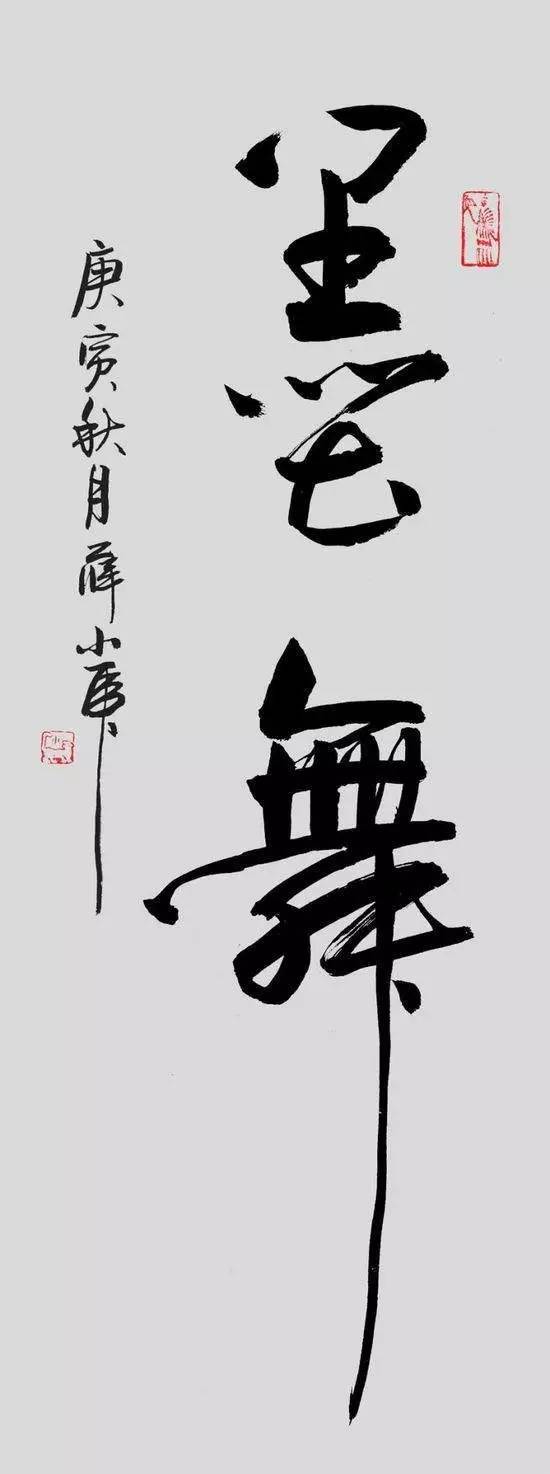 墨舞
庚寅秋月薛小